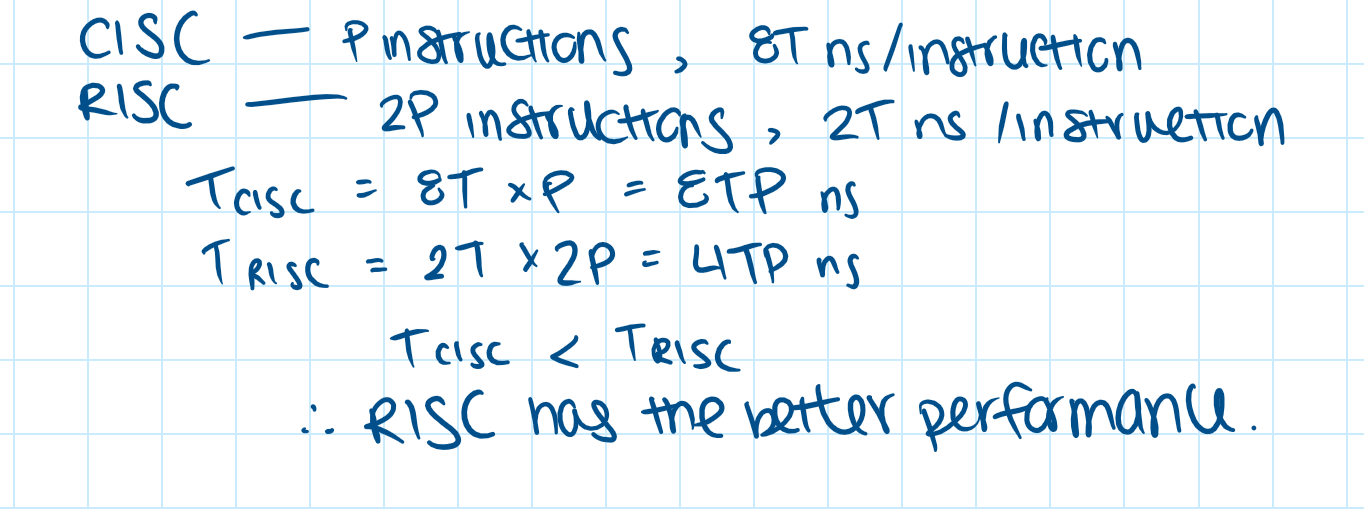 CISC — P instructions, 8T ns/instruction
RISC — 2P instructions, 2T ns/instruction
TCISC = 8T × P = 8TP ns
TRISC = 2T × 2P = 4TP ns
TCISC < TRISC
∴ RISC has the better performance.